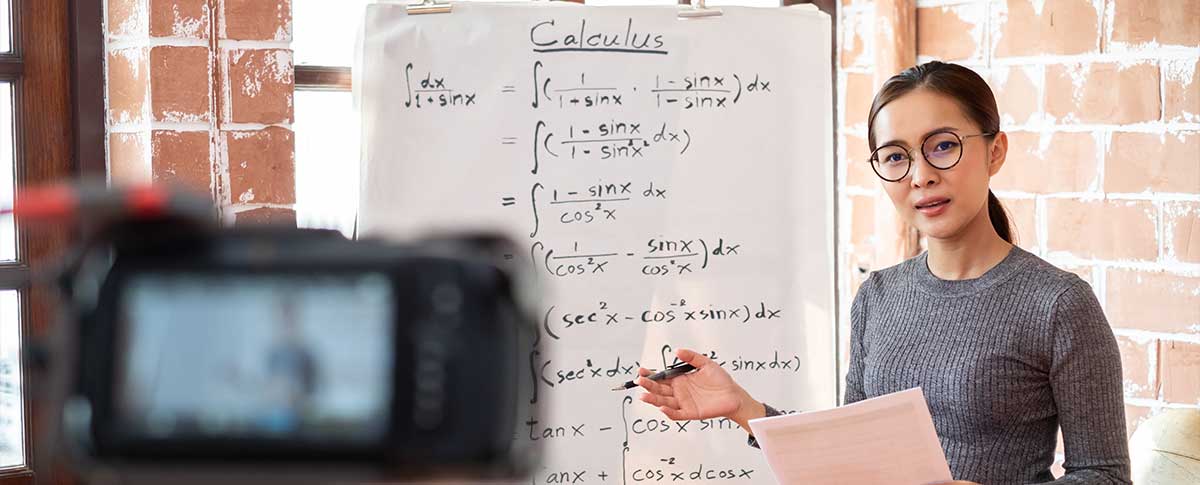 Calculus
∫ dx/1+sinx = ∫( 1/1+sinx · 1-sinx/1-sinx ) dx
= ∫( 1-sinx/1-sin²x² dx )
= ∫ 1-sinx/cos²x dx
∫( 1/cos²x - sinx/cos²x ) dx
∫( sec²x - cos⁻²x sinx ) dx
∫( sec²x dx) - ∫ x sinx dx)
tanx - ∫ cos x sin
anx + ∫ cos⁻²x d cosx